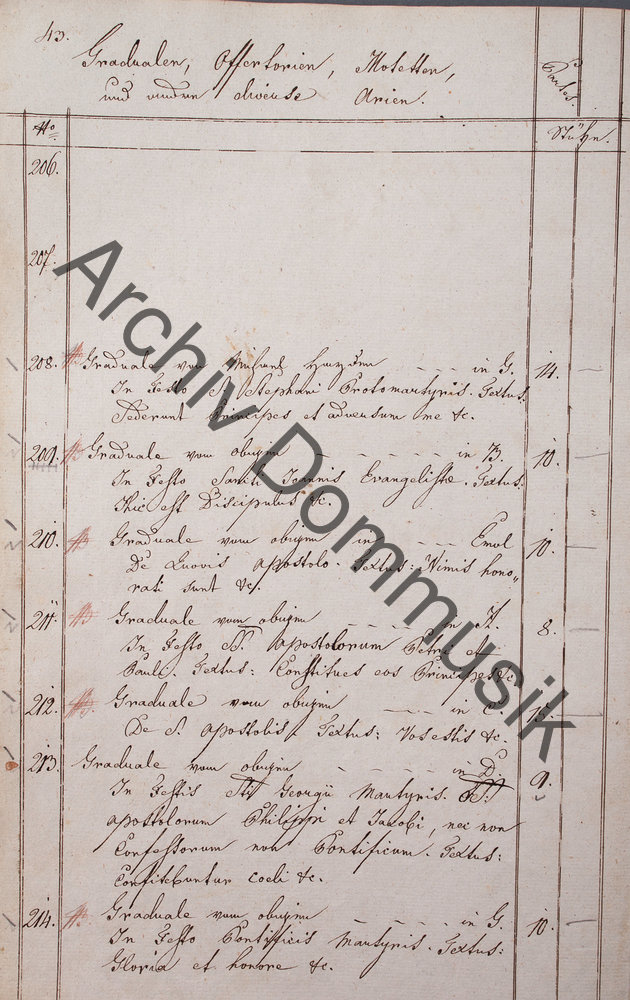 43.
Gradualen, Offertorien, Motetten,
und andere diverse Arien.
Partes
No
Stück.
206.
207.
208. Graduale von Michael Haydn - - - in G. 14.
In Festo St. Stephani Protomartyris. Textus:
Sederunt Principes et adversum me &c.
209. Graduale vom obigen - - - - - in B. 10.
In Festo Sancti Joannis Evangelistæ. Textus:
Hic est Discipulus &c.
210. Graduale vom obigen in - - - Emol 10.
De Quovis Apostolo. Textus: Nimis hono„
rati sunt &c.
211. Graduale vom obigen - - - - in A. 8.
In Festo SS. Apostolorum Petri et
Pauli. Textus: Constitues eos Principes &c.
212. Graduale vom obigen - - - in C. 15.
De S. Apostolis. Textus: Vos estis &c.
213. Graduale vom obigen - - - - - in D. 9.
In Festis Sti Georgii Martyris.
Apostolorum Philippi et Jacobi, nec non
Confessorum non Pontificum. Textus:
Confitebuntur coeli &c.
214. Graduale vom obigen - - - - in G. 10.
In Festo Pontificis Martyris. Textus:
Gloria et honore &c.
Archiv Dommusik